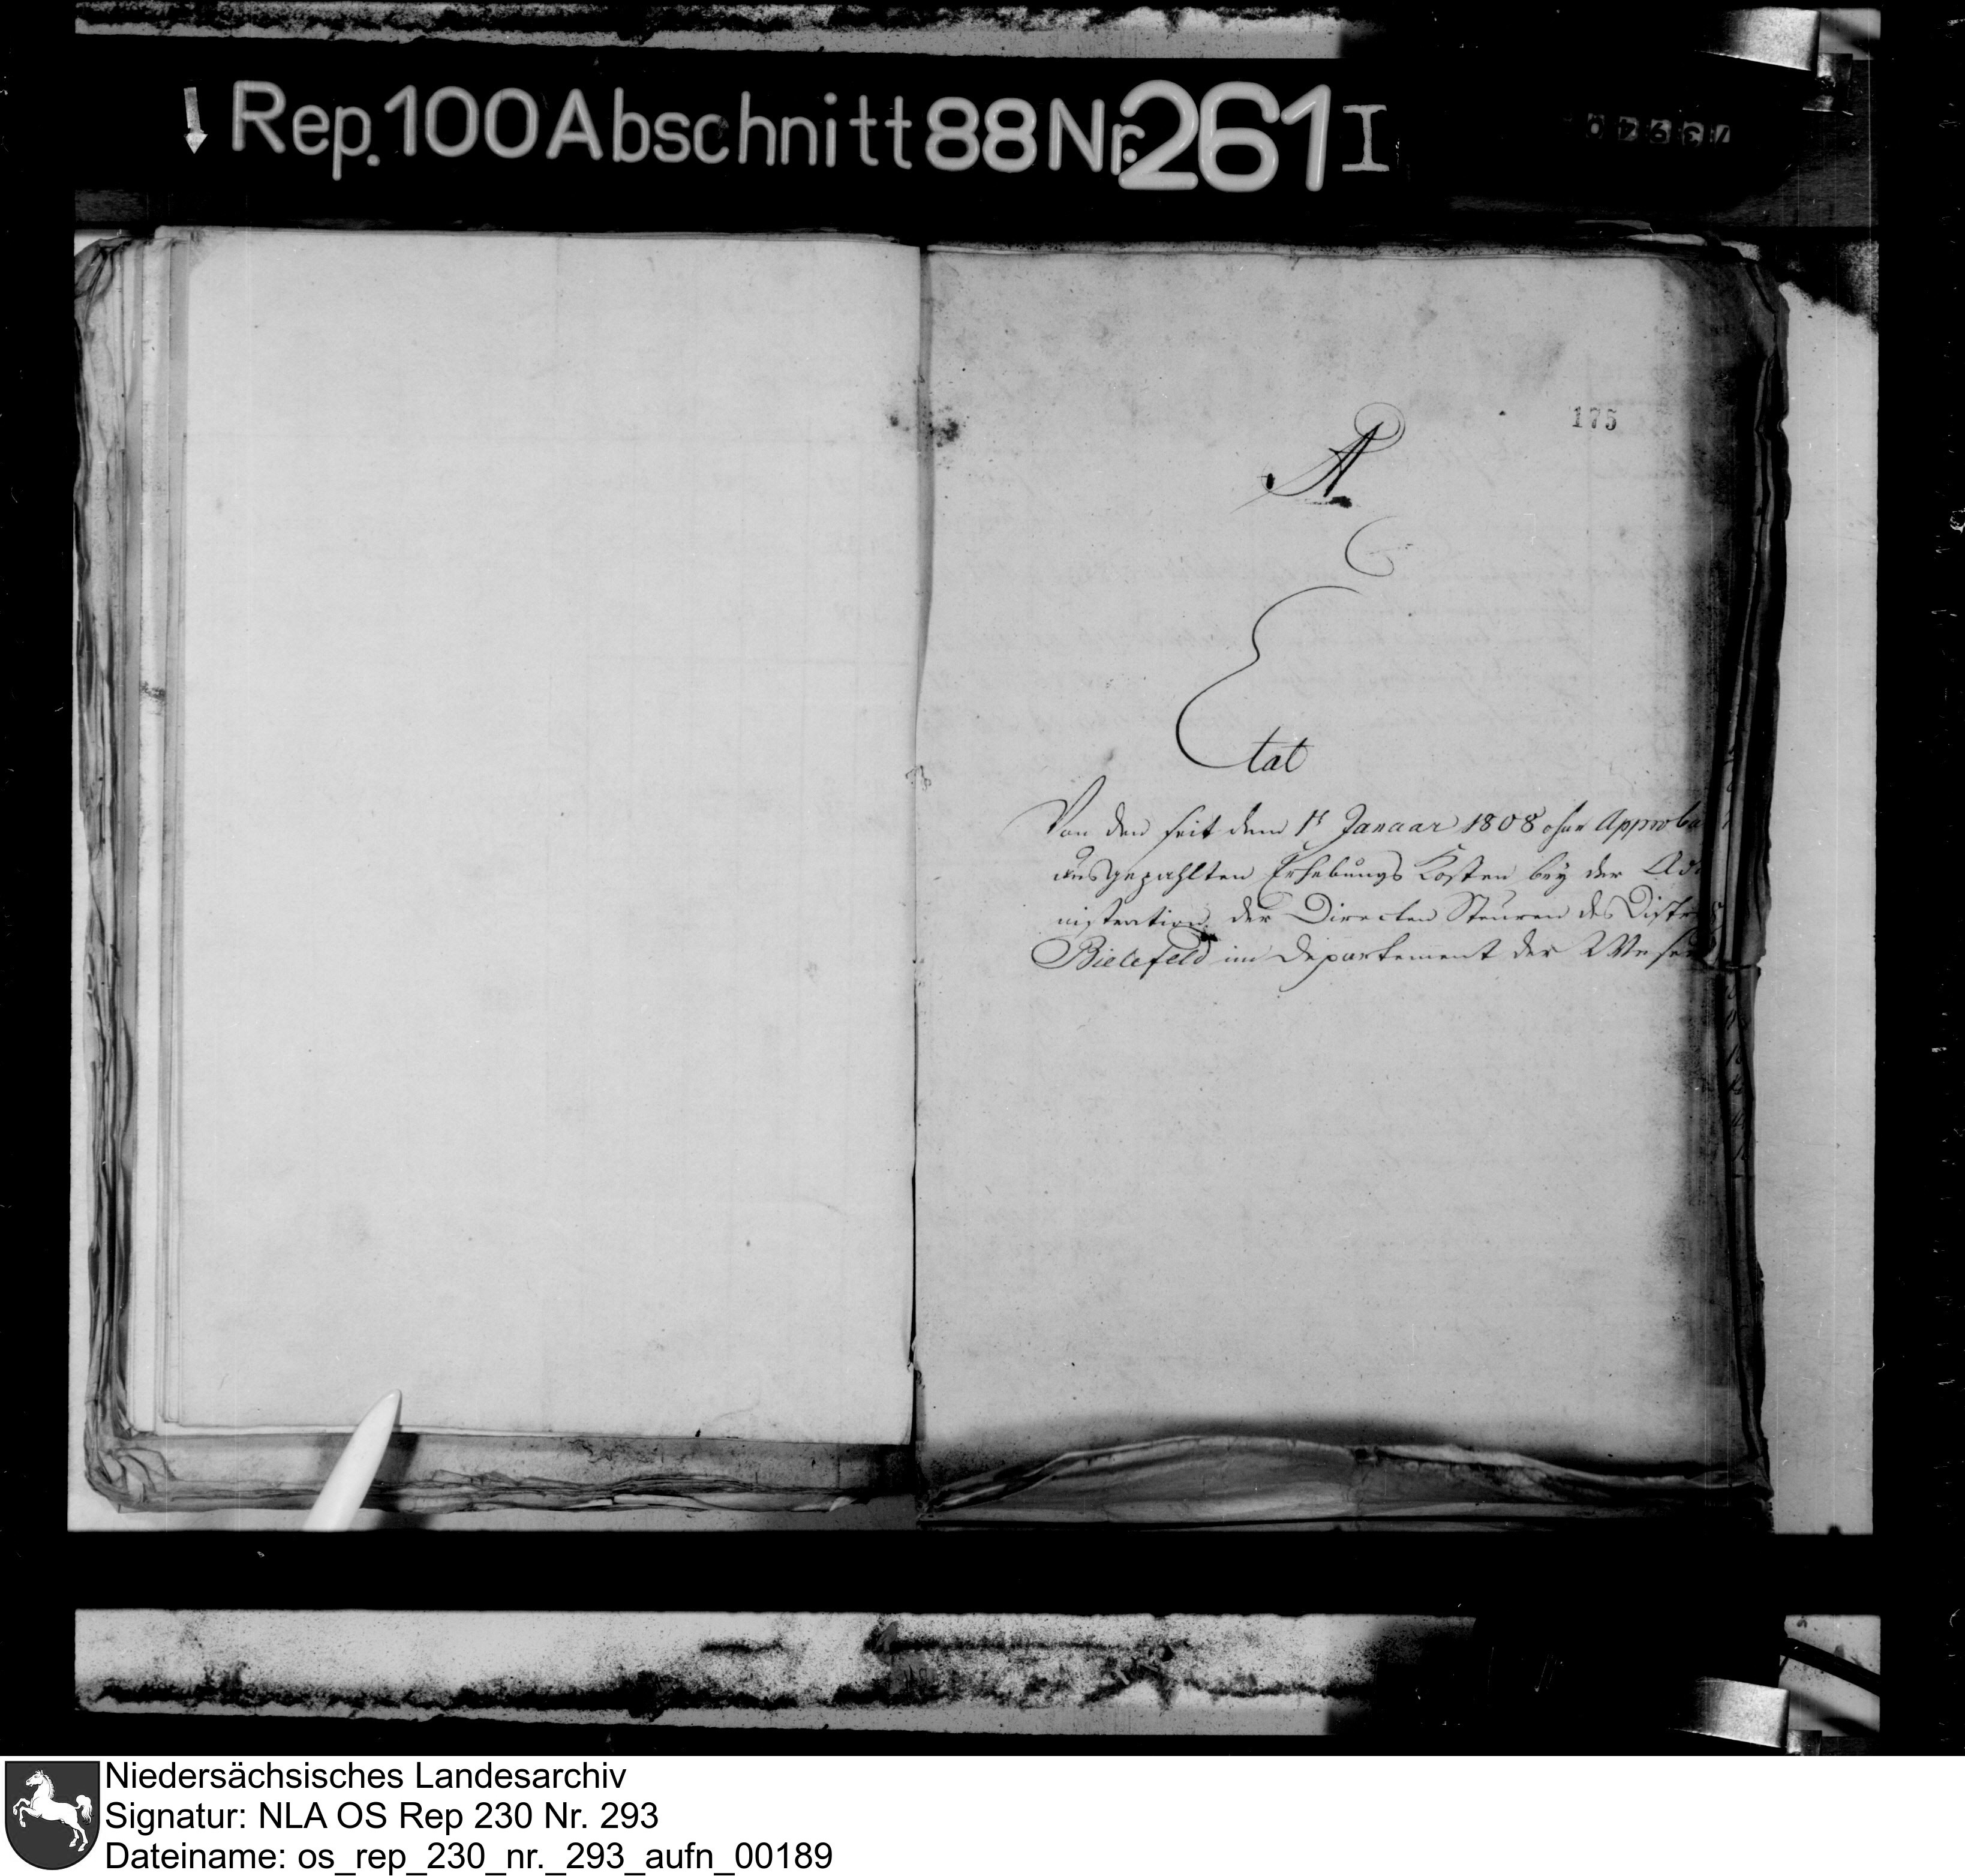 Rep. 100 Abschnitt 88 Nr. 261 I
175
A
Etat
Von den seit dem 1t Januar 1808 ohne Approba
ausgezahlten Erhebungs Kosten bey der Ad
nistration der Directen Steuren des Distr
Bielefeld im Departement der Weser
Niedersächsisches Landesarchiv
Signatur: NLA OS Rep 230 Nr. 293
Dateiname: os_rep_230_nr._293_aufn_00189